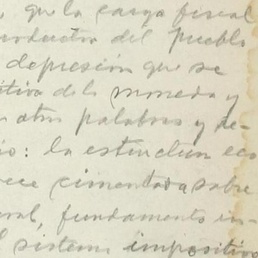 que la carga fiscal
productor del Pueblo
depresión que se
de la moneda y
otras palabras y de-
: la estructura eco
rece cimentada sobre
ral, fundamento in-
l sistema impositivo